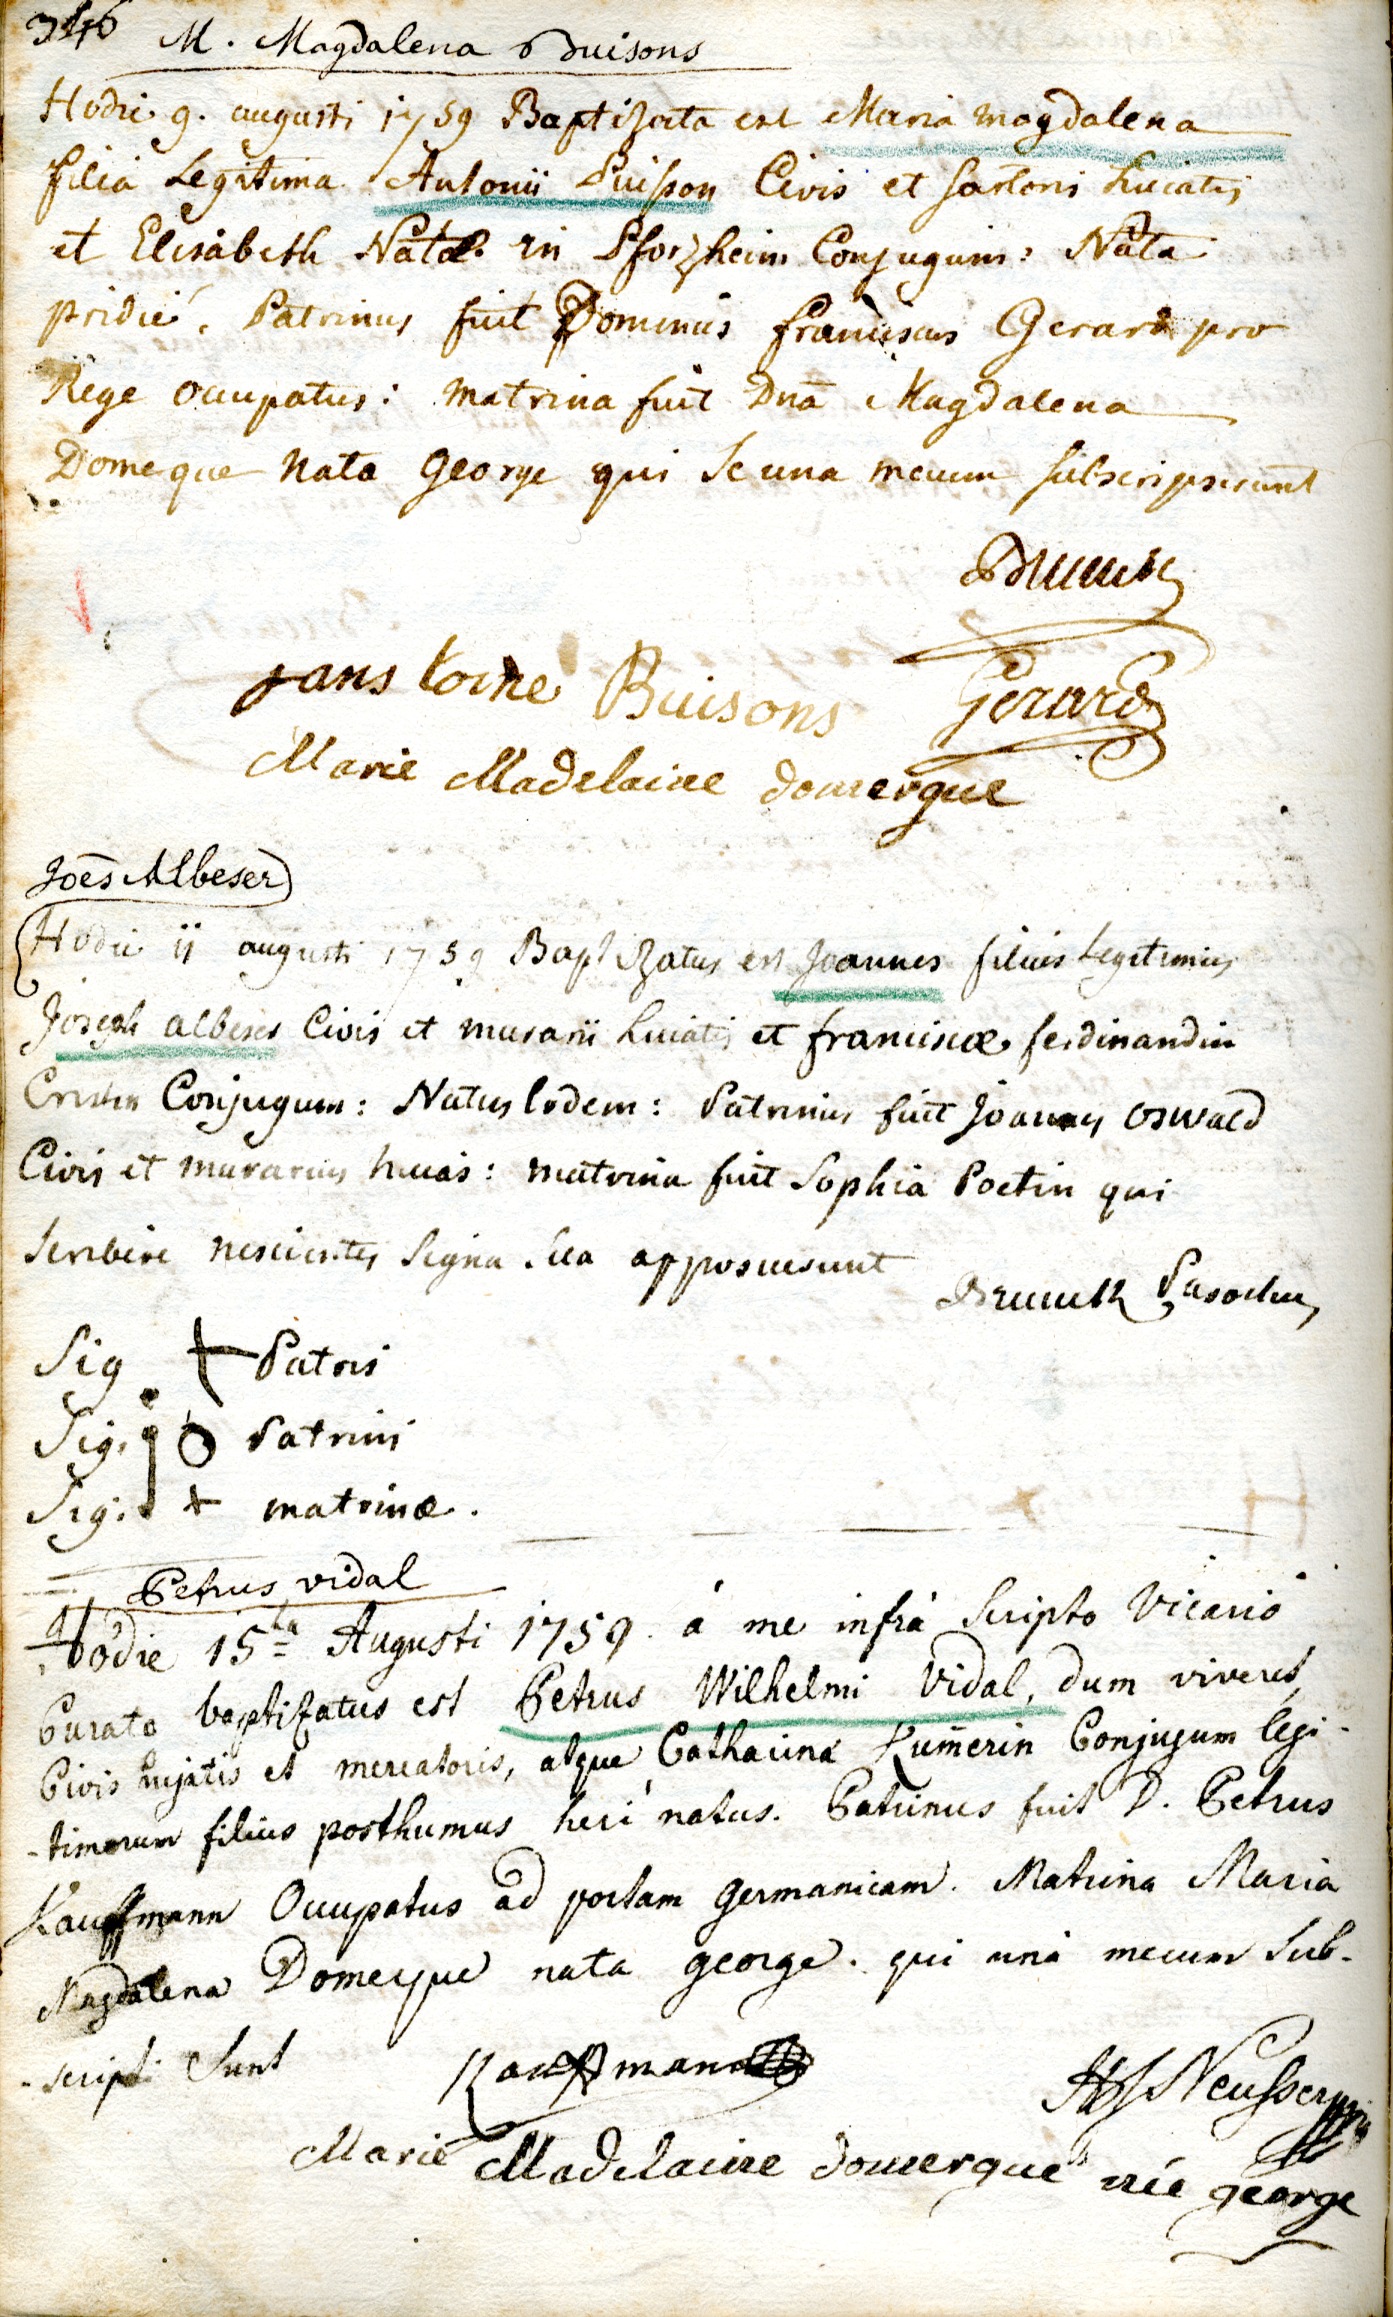 346
M. Magdalena Buisons
Hodie 9. augusti 1759 Baptizata est Maria magdalena
filia Legitima Antonii Puisson Civis et sartoris huiatis
et Elisabeth Natae in Pforzheim Conjugum: Nata
pridie. Patrinus fuit Dominus franciscus Gerard pro
Rege occupatus: matrina fuit Dna Magdalena
Domeque nata George qui se una mecum subscripserunt
jans toine Buisons Gerard
Marie Madelaine domergue
Joes Albeser
Hodie ii augusti 1759 Baptizatus est Joannes filius Legitimus
Joseph albeses Civis et murarii huiatis et franciscae ferdinandin
Conjugum: Natus Eodem: Patrinus fuit Joannes oswald
Civis et murarius huias: matrina fuit Sophia Poetin qui
scribere nescientes Signa sua apposuerunt
Sig + Patris
Sig: O Patrini
Sig: + matrinae.
Petrus vidal
Hodie 15ta Augusti 1759 á me infrá Scripto Vicario
Curato baptizatus est Petrus Wilhelmi Vidal, dum viveret,
Civis hujatis et mercatoris, atque Catharina Kumerin Conjugum legi-
-timorum filius posthumus heri natus. Patrinus fuit D. Petrus
Kauffmann Occupatus ad portam Germanicam. Matrina Maria
Magdalena Domeque nata george. qui uná mecum Sub-
-scripti Sunt Kauffmann
Marie Madelaine domergue née george